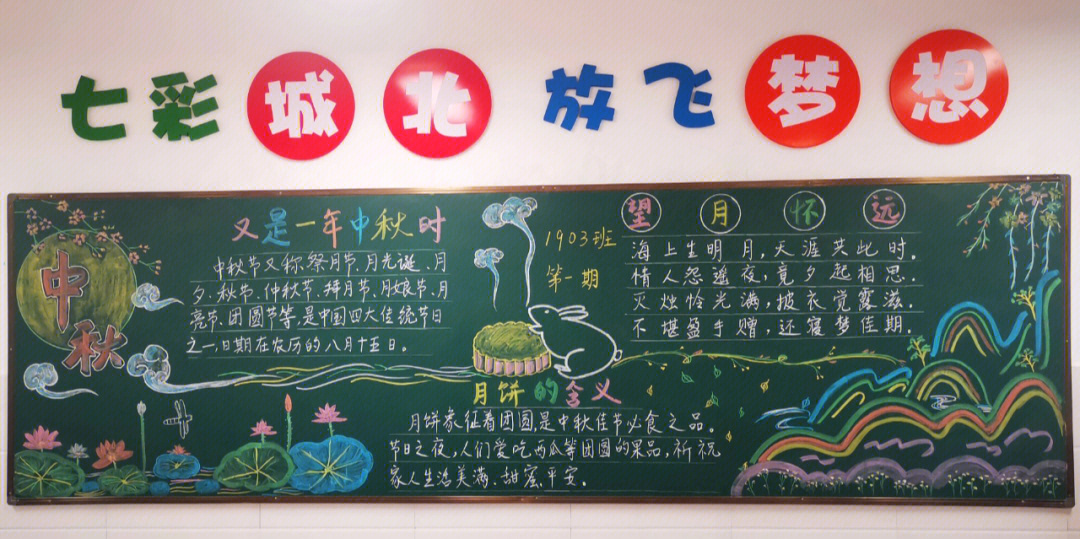 七彩城北 放飞梦想
中秋
又是一年中秋时
中秋节又称祭月节、月光诞、月
夕、秋节、仲秋节、拜月节、月娘节、月
亮节、团圆节等,是中国四大传统节日
之一,日期在农历的八月十五日。
1903班
第一期
望月怀远
海上生明月,天涯共此时.
情人怨遥夜,竟夕起相思.
灭烛怜光满,披衣觉露滋.
不堪盈手赠,还寝梦佳期.
月饼的含义
月饼象征着团圆,是中秋佳节必食之品。
节日之夜,人们爱吃西瓜等团圆的果品,祈祝
家人生活美满、甜蜜、平安。